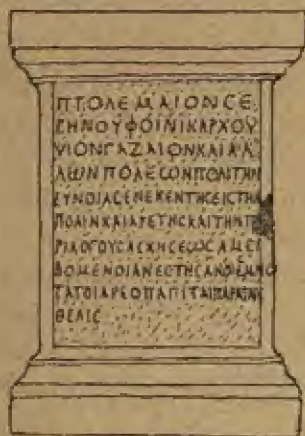 ΠΤΟΛΕΜΑΙΟΝϹΕ
ΡΗΝΟΥΦΟΙΝΙΚΑΡΧΟΥ
ΥΙΟΝΓΑΖΑΙΟΝΚΑΙΑΛ
ΛΩΝΠΟΛΕΩΝΠΟΛΙΤΗΝ
ΕΥΝΟΙΑϹΕΝΕΚΕΝΤΗϹΕΙϹΤΗΝ
ΠΟΛΙΝΚΑΙΑΡΕΤΗϹΚΑΙΤΗϹΠΕ
ΡΙΛΟΓΟΥϹΑϹΚΗϹΕΩϹΑΜΕΙ
ΒΟΜΕΝΟΙ
ΤΑΤΟΙΑΡΕΟΠΑΓΙΤΑΙ